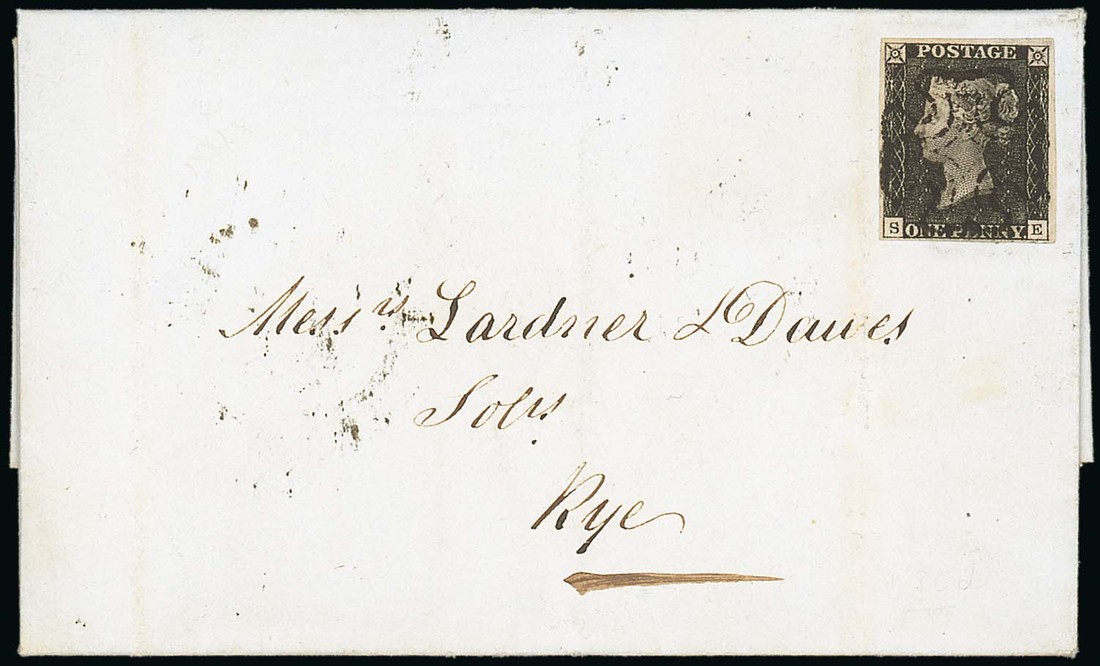 POSTAGE
S ONE PENNY. E
Messrs Lardner & Dawes
Solrs
Rye